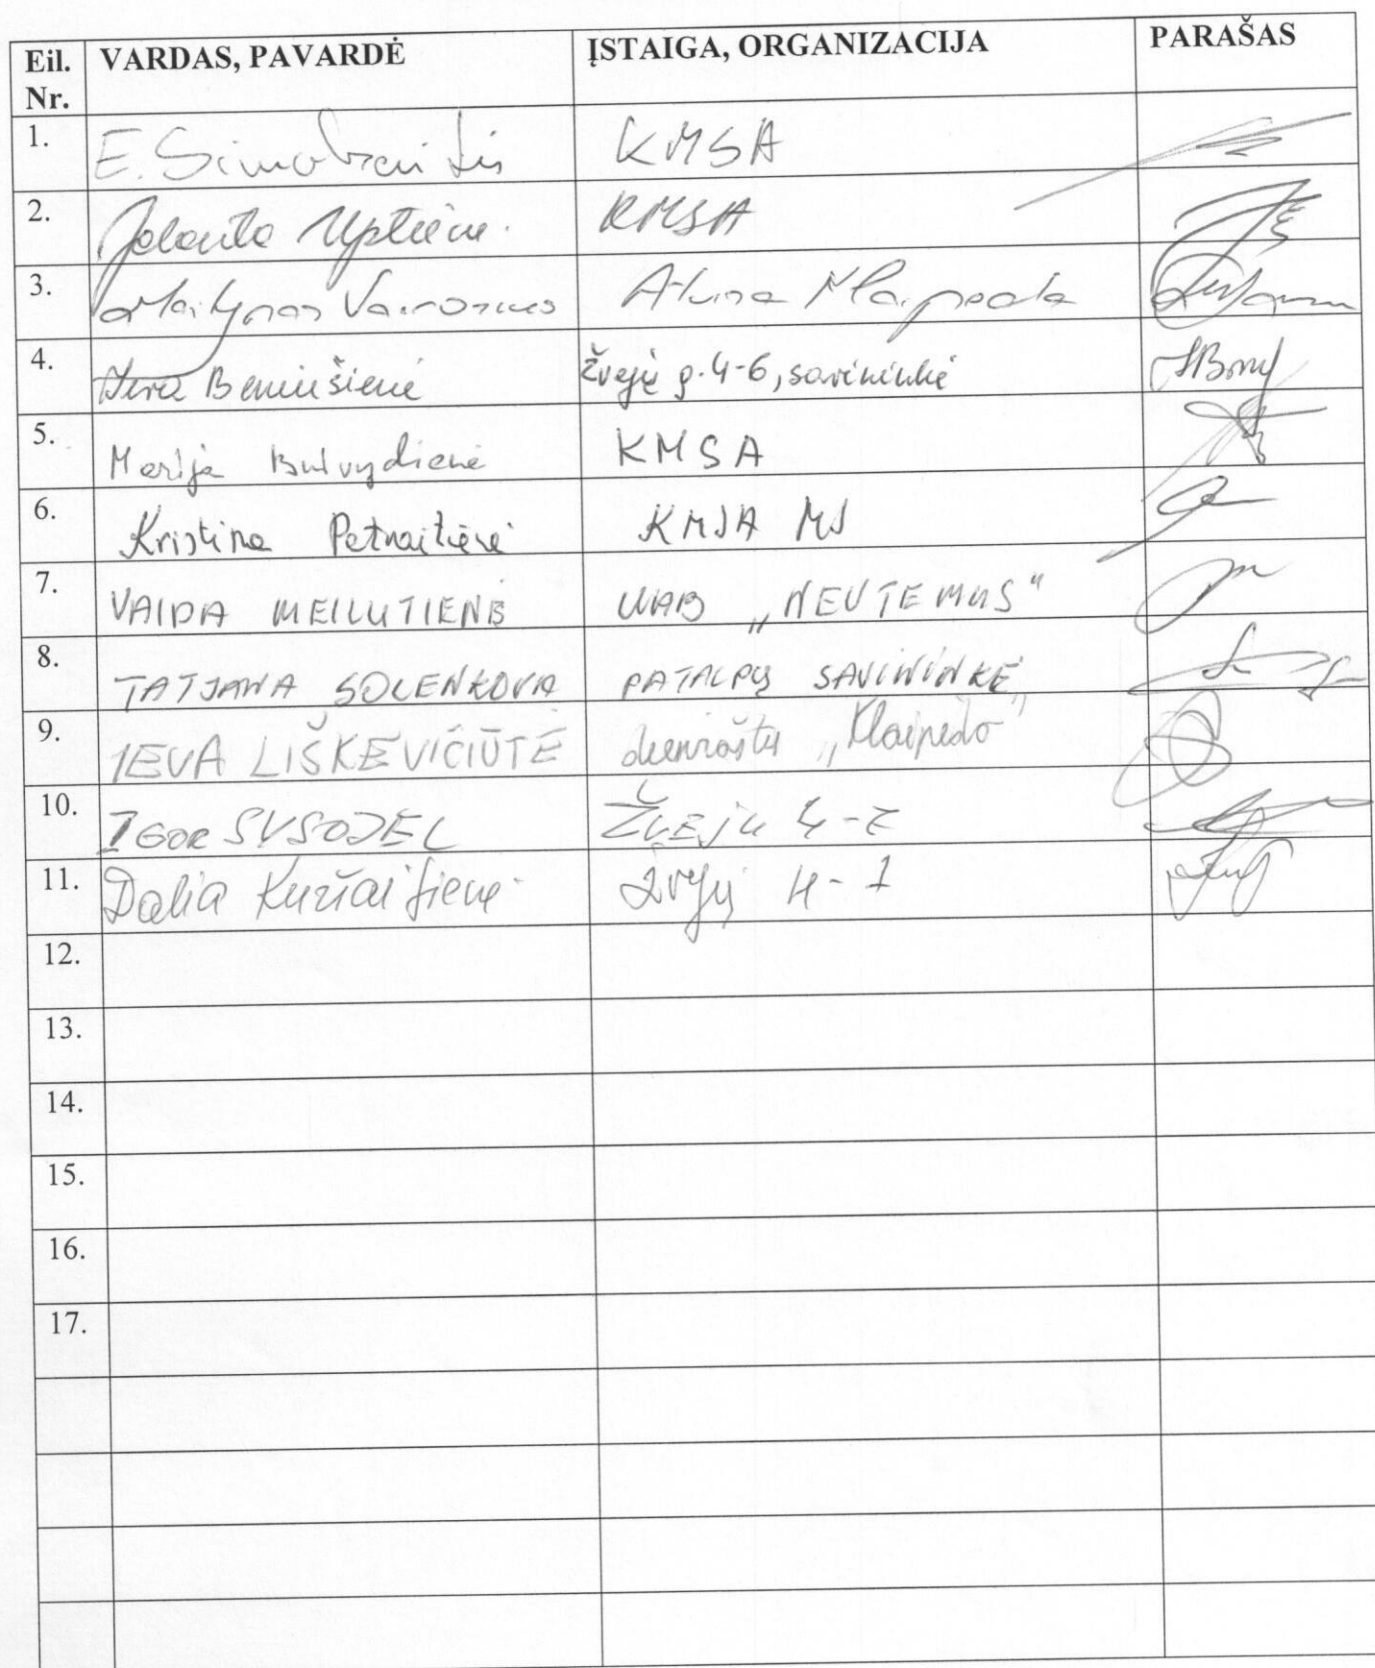 Eil. Nr. VARDAS, PAVARDĖ ĮSTAIGA, ORGANIZACIJA PARAŠAS
1. E. KMSA
2. Jolanta KMSA
3. Martynas Atvira Klaipėda
4. Beniušienė Žvejų g. 4-6, savininkė
5. Marija Butvydienė KMSA
6. Kristina Petraitienė KMSA MS
7. VAIDA MEILUTIENĖ UAB
8. TATJANA SOLENKOVA PATALPŲ SAVININKĖ
9. IEVA LIŠKEVIČIŪTĖ dienraštis „Klaipėda"
10. IGOR SVSOJEL Žvejų 4-2
11. Dalia Žvejų 4-1
12.
13.
14.
15.
16.
17.